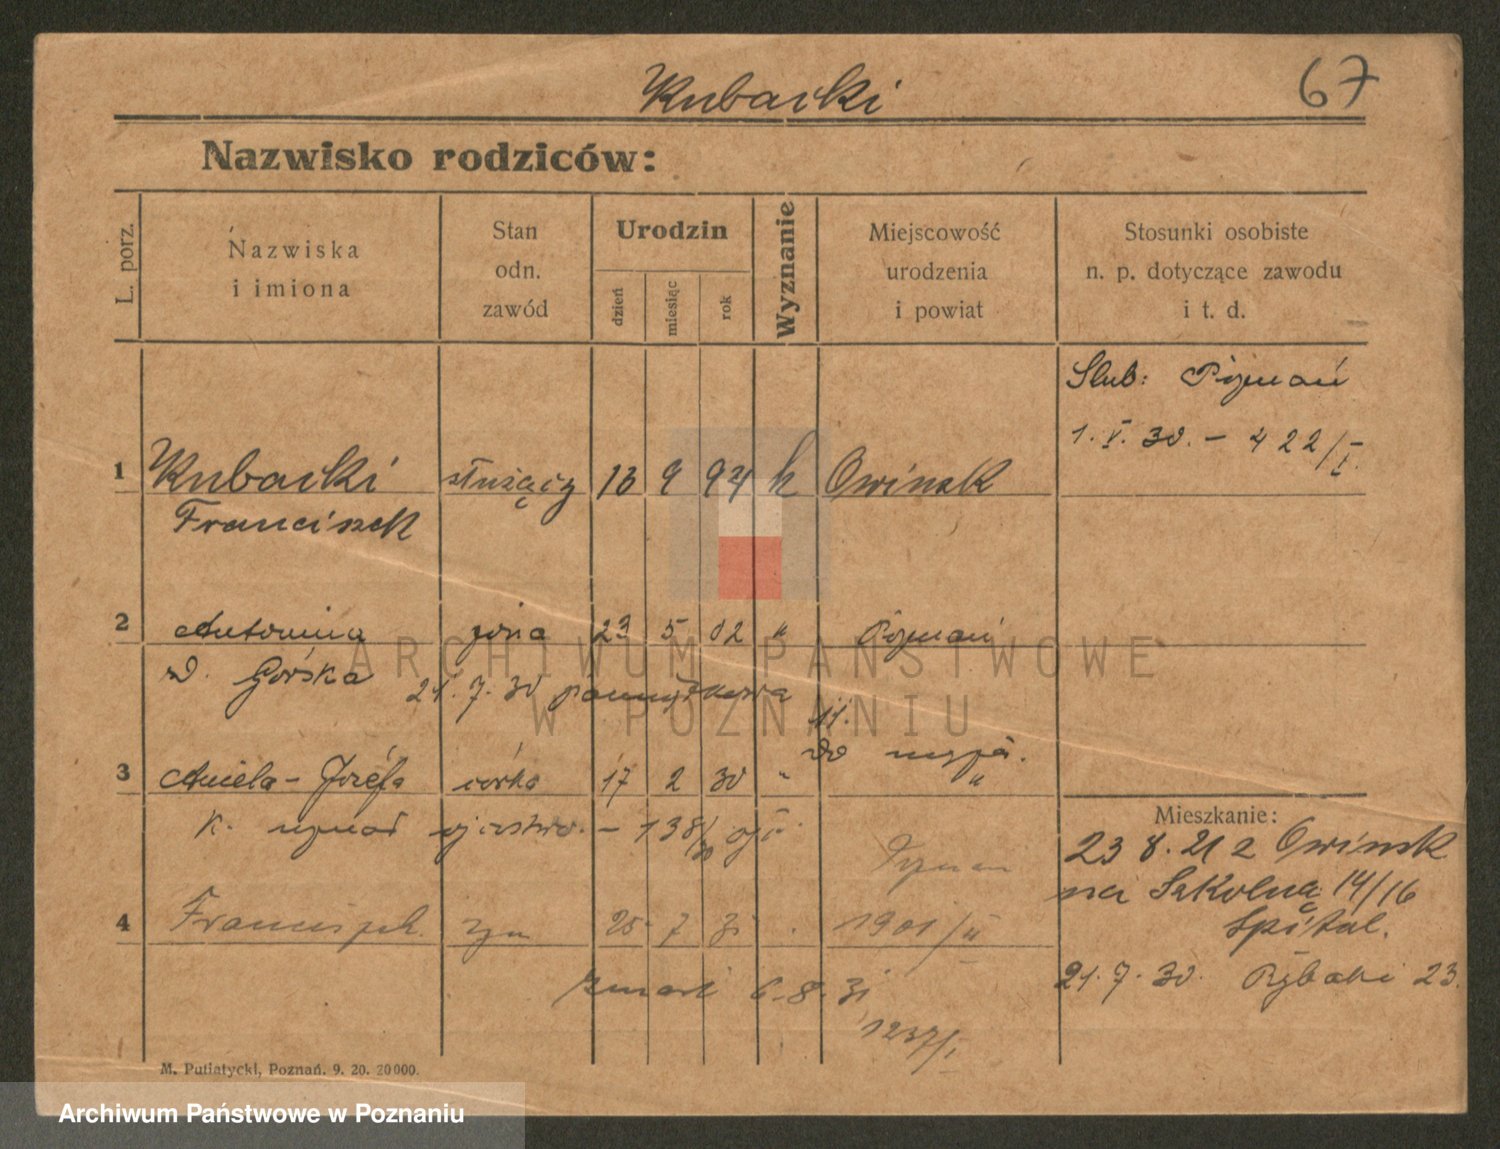 Kubacki
67
Nazwisko rodziców:
L. porz.
Nazwiska
i imiona
Stan
odn.
zawód
Urodzin
dzień
miesiąc
rok
Wyznanie
Miejscowość
urodzenia
i powiat
Stosunki osobiste
n. p. dotyczące zawodu
i t. d.
Slub: Poznań
1. V. 30. - 422/I.
1 Kubacki służący 13 9 94 k Owinsk
Franciszek
2 Antonina żona 23 5 02 " Poznań
d. Górska
21. 7. 30
3 Aniela-Józefa córka 17 2 30 " "
K. uznał ojcostwo. - 138/30
4 Franciszek syn 25 7 31 1901/II
Poznań
zmarł 6.8.31
1237/I
Mieszkanie:
23 8. 21 z Owinsk
na Szkolną 14/16
Spital.
21. 7. 30. Rybaki 23.
M. Putiatycki, Poznań. 9. 20. 20000.
ARCHIWUM PAŃSTWOWE
W POZNANIU
Archiwum Państwowe w Poznaniu